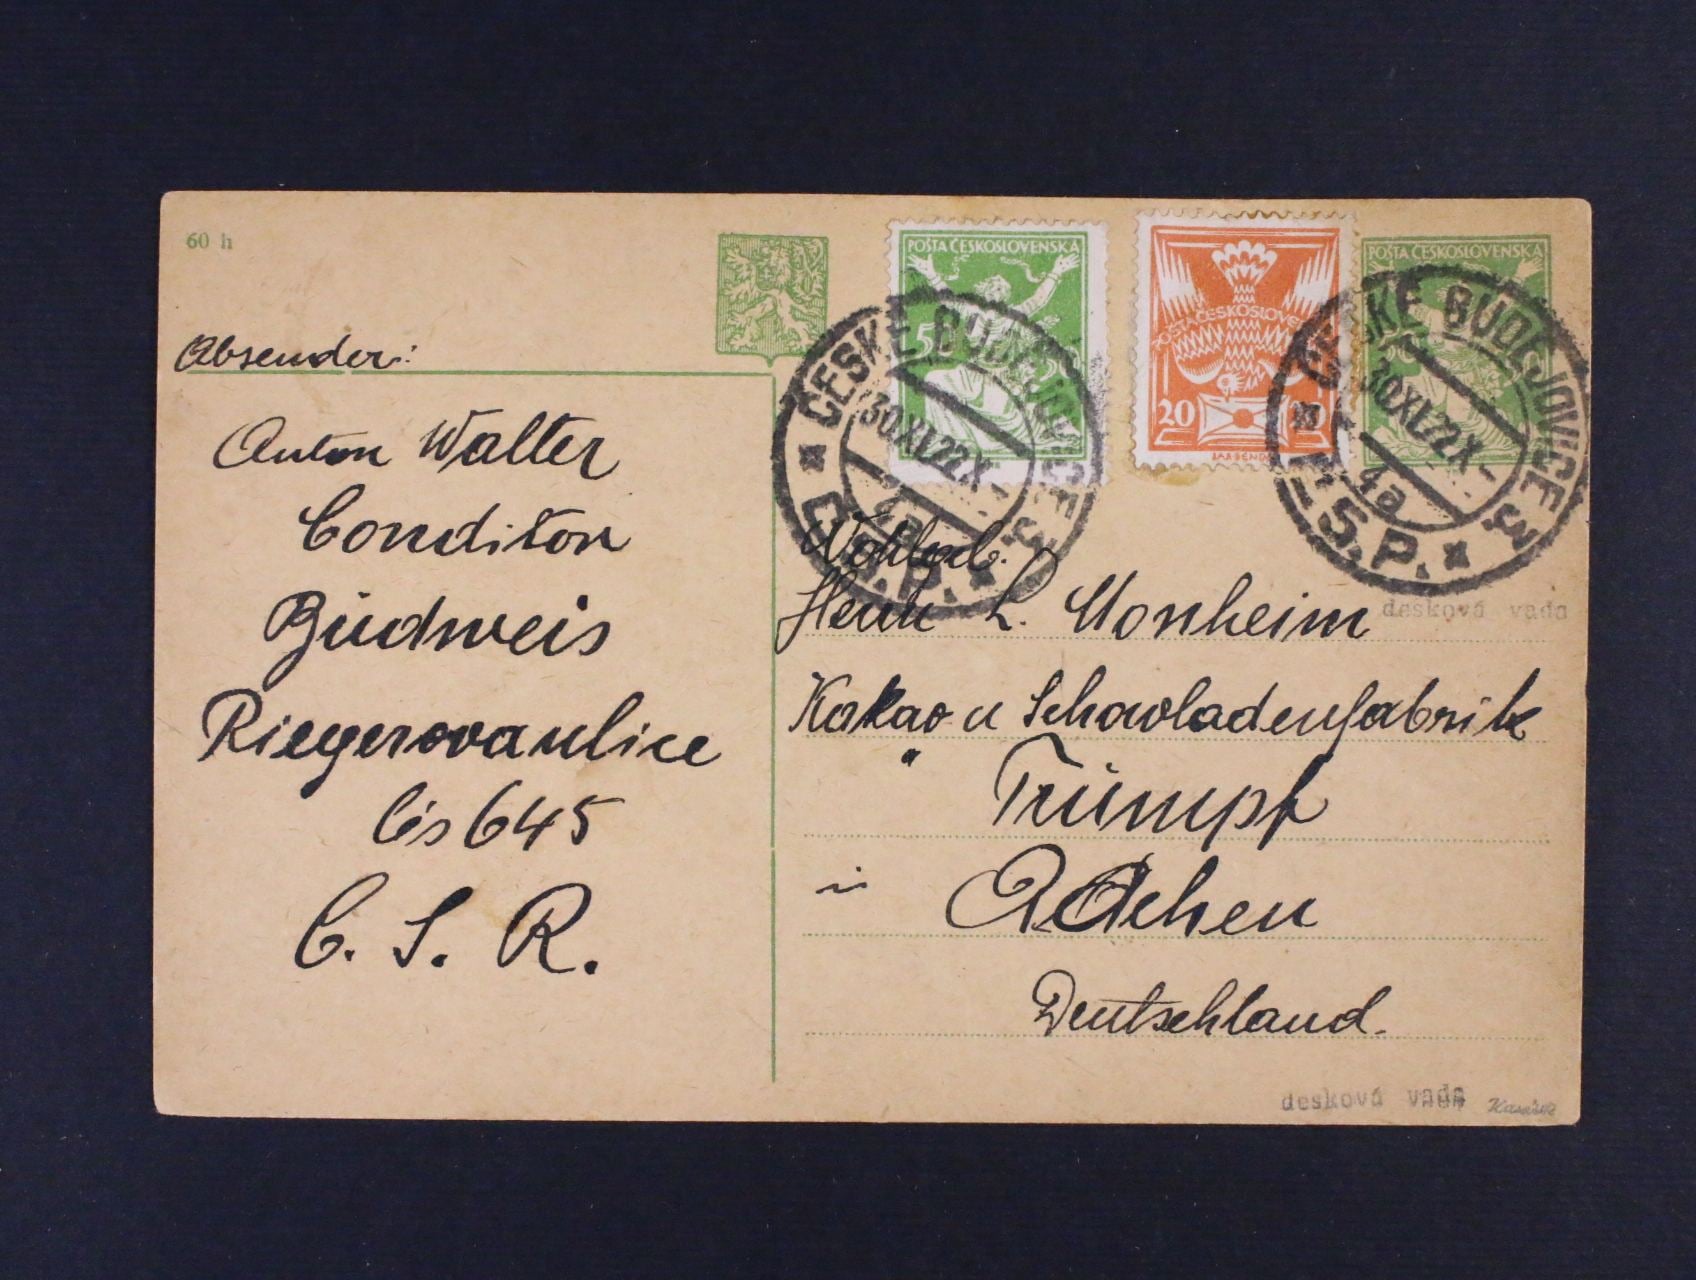 60 h
Absender:
Anton Walter
Conditor
Budweis
Riegerovaulice
čís 645
C. S. R.
POŠTA ČESKOSLOVENSKÁ
POŠTA ČESKOSLOVE
20
POŠTA ČESKOSLOVENSKÁ
ČESKÉ BUDĚJOVICE 3
30.XI.22.X-
4a
Č.S.P.
ČESKÉ BUDĚJOVICE 3
30.XI.22.X-
4a
Č.S.P.
Wohlgeb.
Herrn L. Monheim
desková vada
Kakao u Schowladenfabrik
"Trumpf
in Aachen
Deutschland.
desková vada